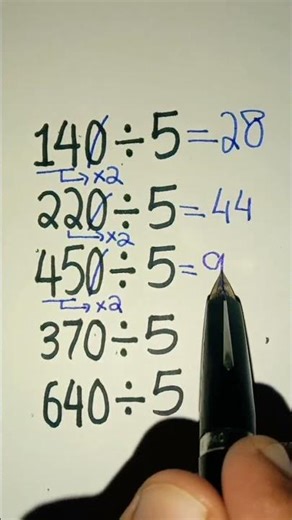 140÷5=28
×2
220÷5=44
×2
450÷5=9
×2
370÷5
640÷5